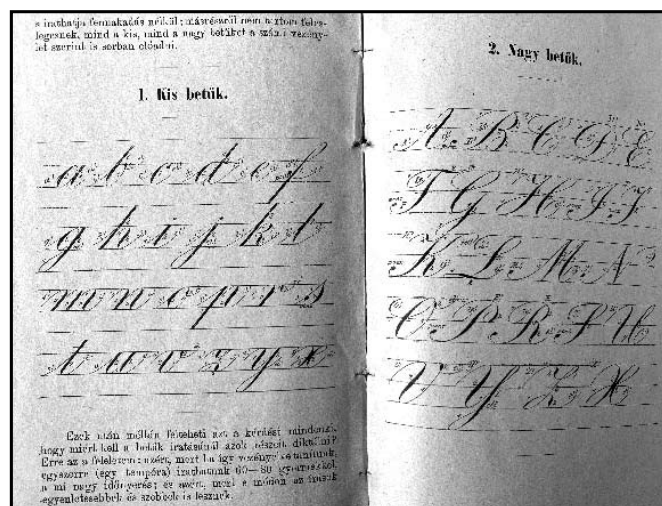 a irathatja fennakadás nélkül; másrészről nem tartom feles-
legesnek, mind a kis, mind a nagy betűket a számi vezény-
let szerint is sorban előadni.
1. Kis betűk.
a b c d e f
g h i j k l
m n o p r s
t u v z y x
Ezek után méltán felteheti azt a kérdést mindenki,
hogy miért kell a betűk iratásánál azok részeit diktálni?
Erre az a feleletem: azért, mert ha így vezényelve tanítunk,
egyszerre (egy tempóra) irathatunk 60—80 gyermekkel,
a mi nagy időnyerés; és azért, mert a módon az írások
egyenletesebbek és szebbek is lesznek.
2. Nagy betűk.
A B C D E
F G H I J
K L M N
O P R S U
V Y Z X